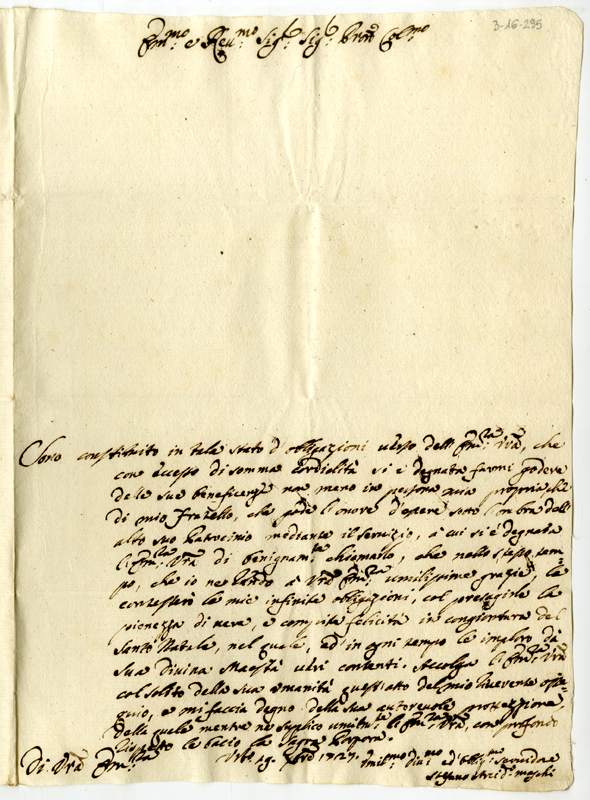 3-16-295
Em.mo e Reu.mo Sig.r Sig.r Pron Col.mo
Sono constituito in tale stato d'obligazioni verso dell'Em.za Vra, che
con eccesso di somma cordialità si è degnata farmi godere
delle sue beneficenze non meno in persona mia propria, che
di mio fratello, che gode l'onore d'essere sotto l'ombra dell'
alto suo Patrocinio mediante il servizio, à cui si è degnata
l'Em.za Vra di benignam.te chiamarlo, che nello stesso tem-
po, che io ne rendo à Vra Em.za umilissime grazie, le
contesterò le mie infinite obligazioni, col presagirle la
pienezza di vera, e compita felicità in congiontura del
Santo Natale, nel quale, ed in ogni tempo le imploro da
Sua Divina Maestà veri contenti. Accolga l'Em.za Vra
col solito della sua umanità quest'atto del mio riverente osse-
quio, e mi faccia degno della sua autorevole protezzione,
della quale mentre ne suplico umilm.te l'Em.za Vra, con profondo
le bacio la Sagra Porpora.
Di Vra Em.za
19. Xbre 1727.
Umil.mo Div.mo ed Oblig.mo Servidore
Maschi